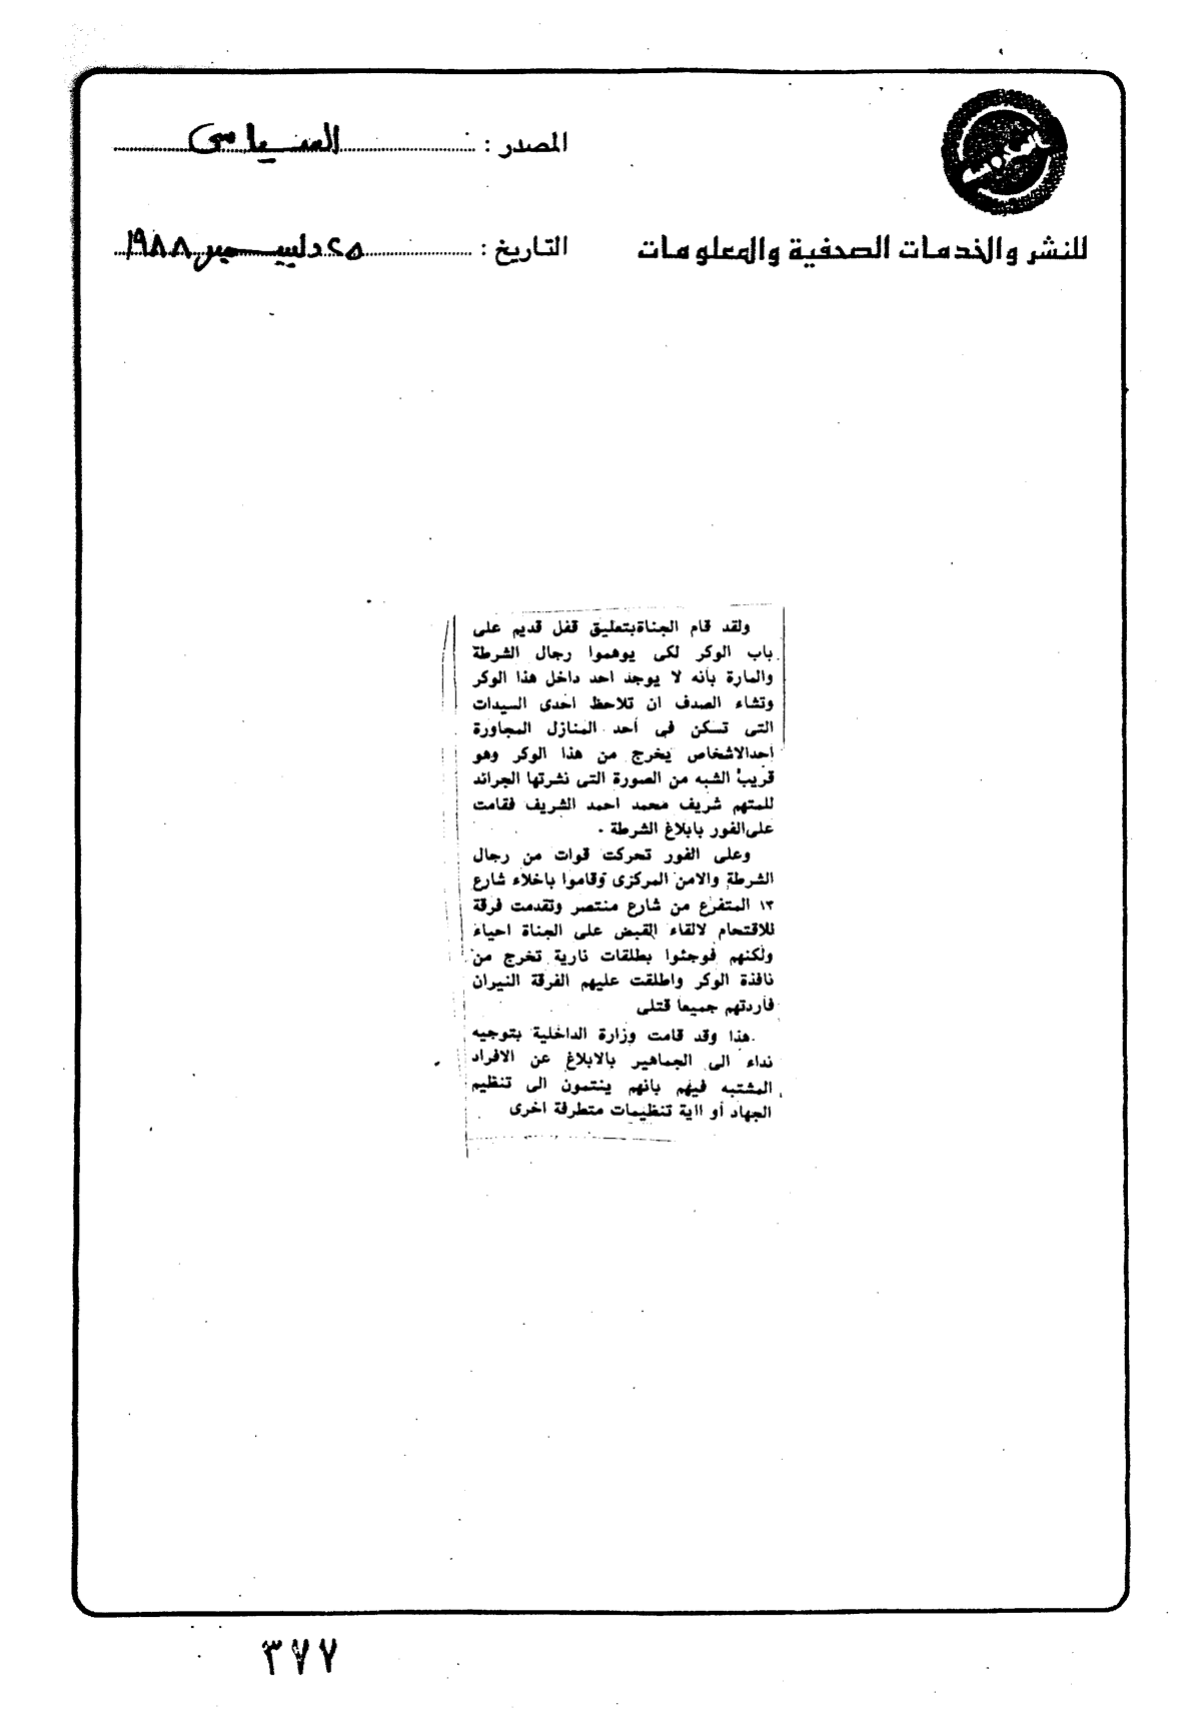 المصدر : السياسى
للنشر والخدمات الصحفية والمعلومات
التاريخ : ٢٥ ديسمبر ١٩٨٨
ولقد قام الجناة بتعليق قفل قديم على
باب الوكر لكى يوهموا رجال الشرطة
والمارة بأنه لا يوجد احد داخل هذا الوكر
وتشاء الصدف ان تلاحظ احدى السيدات
التى تسكن فى أحد المنازل المجاورة
احد الاشخاص يخرج من هذا الوكر وهو
قريب الشبه من الصورة التى نشرتها الجرائد
للمتهم شريف محمد احمد الشريف فقامت
على الفور بابلاغ الشرطة .
وعلى الفور تحركت قوات من رجال
الشرطة والامن المركزى وقاموا باخلاء شارع
١٣ المتفرع من شارع منتصر وتقدمت فرقة
للاقتحام لالقاء القبض على الجناة احياء
ولكنهم فوجئوا بطلقات نارية تخرج من
نافذة الوكر واطلقت عليهم الفرقة النيران
فأردتهم جميعا قتلى
هذا وقد قامت وزارة الداخلية بتوجيه
نداء الى الجماهير بالابلاغ عن الافراد
المشتبه فيهم بانهم ينتمون الى تنظيم
الجهاد أو ااية تنظيمات متطرفة اخرى
٣٧٧